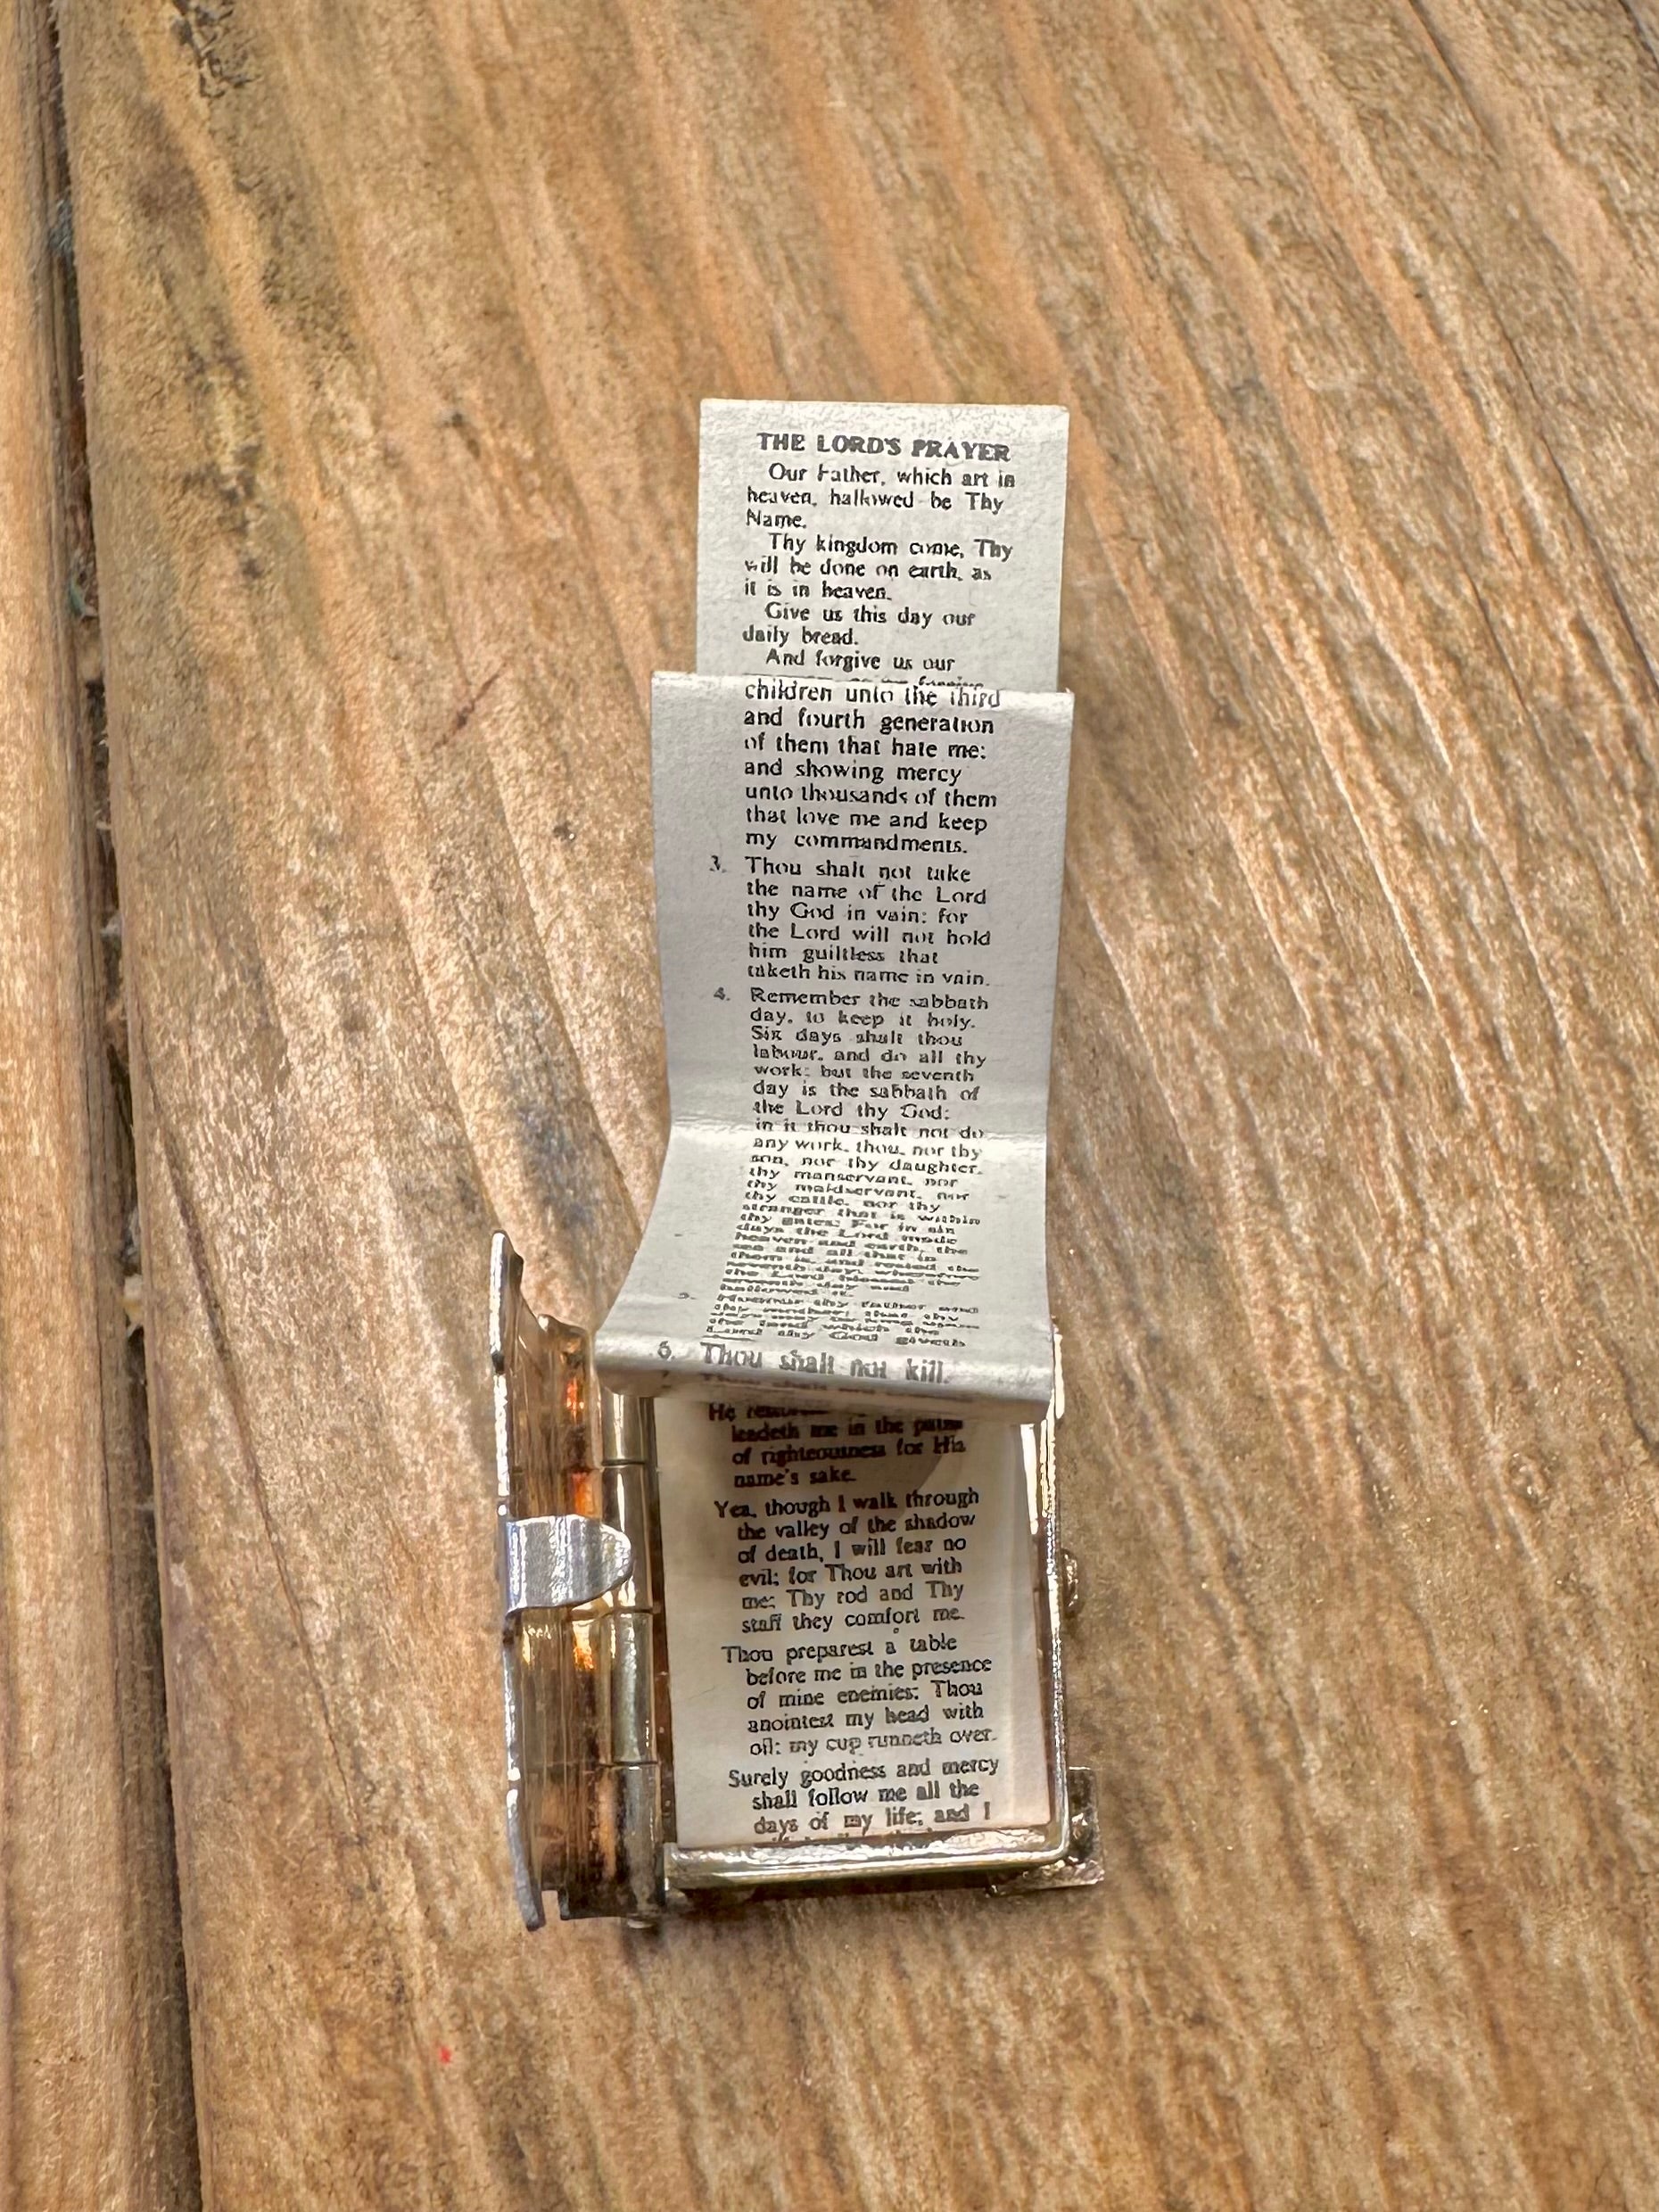 THE LORD'S PRAYER
Our Father, which art in
heaven, hallowed be Thy
Name.
Thy kingdom come, Thy
will be done on earth, as
it is in heaven.
Give us this day our
daily bread.
And forgive us our
children unto the third
and fourth generation
of them that hate me:
and showing mercy
unto thousands of them
that love me and keep
my commandments.
3. Thou shalt not take
the name of the Lord
thy God in vain: for
the Lord will not hold
him guiltless that
taketh his name in vain.
4. Remember the sabbath
day, to keep it holy.
Six days shalt thou
labour, and do all thy
work: but the seventh
day is the sabbath of
the Lord thy God:
in it thou shalt not do
any work, thou, nor thy
son, nor thy daughter,
thy manservant, nor
thy maidservant, nor
thy cattle, nor thy
stranger that is within
thy gates: For in six
days the Lord made
heaven and earth, the
sea and all that in
them is, and rested the
seventh day: wherefore
the Lord blessed the
seventh day and
hallowed it.
5. Honour thy father and
thy mother: that thy
days may be long upon
the land which the
Lord thy God giveth
6. Thou shalt not kill.
He
leadeth me in the paths
of righteousness for His
name's sake.
Yea, though I walk through
the valley of the shadow
of death, I will fear no
evil; for Thou art with
me; Thy rod and Thy
staff they comfort me.
Thou preparest a table
before me in the presence
of mine enemies: Thou
anointest my head with
oil: my cup runneth over.
Surely goodness and mercy
shall follow me all the
days of my life; and I